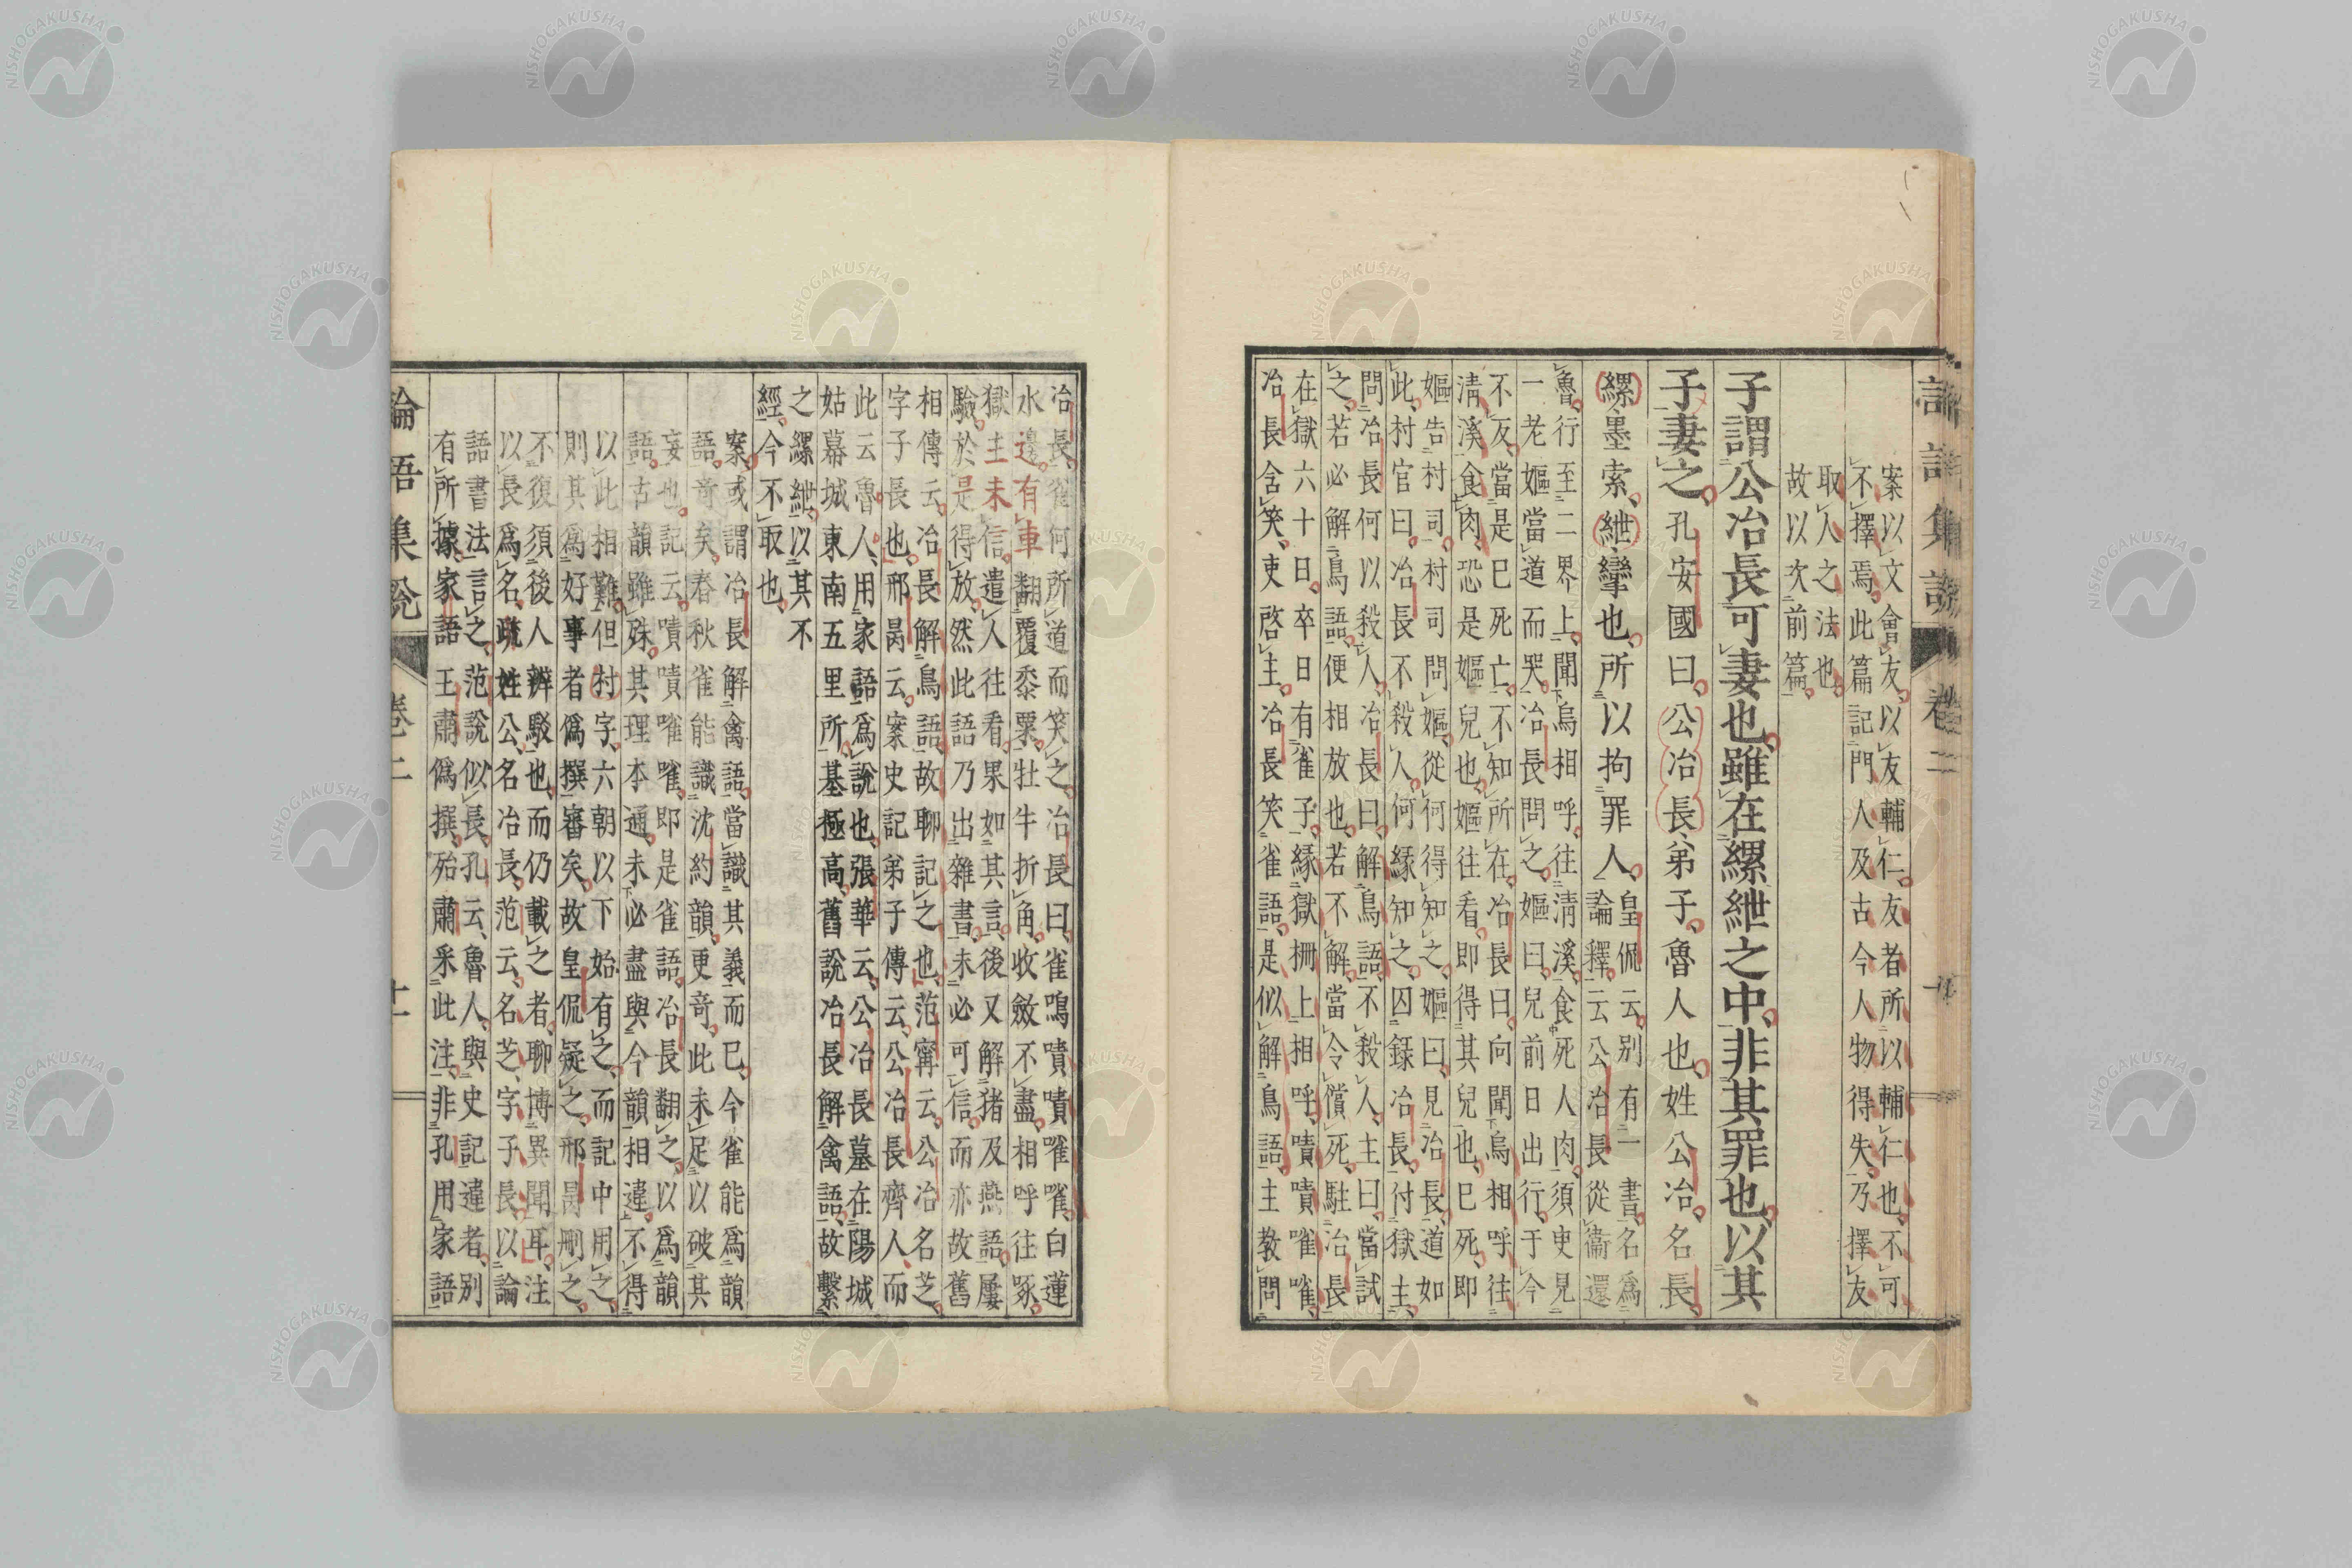 論語集說 卷二 十
案以文會友、以友輔仁、友者所以輔仁也、不可
不擇焉、此篇記門人及古今人物得失、乃擇友
取人之法也、
故以次前篇、
子謂公冶長可妻也、雖在縲絏之中、非其罪也、以其
子妻之、孔安國曰、公冶長、弟子、魯人也、姓公冶、名長、
縲、墨索、紲、攣也、所以拘罪人、皇侃云、別有一書、名爲
論釋云公冶長從衞還
魯、行至二界上、聞鳥相呼、往淸溪、食死人肉、須吏見
一老嫗當道而哭、冶長問之、嫗曰、兒前日出行、于今
不反、當是已死亡、不知所在、冶長曰、向聞鳥相呼往
淸溪食肉、恐是嫗兒也、嫗往看、即得其兒也、已死、即
嫗告村司、村司問嫗、從何得知之、嫗曰、見冶長、道如
此、村官曰、冶長不殺人、何緣知之、囚錄冶長、付獄主、
問冶長何以殺人、冶長曰、解鳥語、不殺人、主曰、當試
之、若必解鳥語、便相放也、若不解、當令償死、駐冶長
在獄六十日、卒日有雀子、緣獄柵上相呼、嘖嘖嗺嗺、
冶長含笑、吏啓主、冶長笑雀語、是似解鳥語、主敎問
冶長、雀何所道而笑之、冶長曰、雀鳴嘖嘖嗺嗺、白蓮
水邊、有車翻覆黍粟、牡牛折角、收斂不盡、相呼往啄、
獄主未信、遣人往看、果如其言、後又解猪及燕語、屢
驗、於是得放、然此語乃出雜書、未必可信、而亦故舊
相傳云、冶長解鳥語、故聊記之也、范寗云、公冶名芝、
字子長也、邢昺云、案史記弟子傳云、公冶長齊人、而
此云魯人、用家語爲說也、張華云、公冶長墓在陽城
姑幕城東南五里所、基極高、舊說冶長解禽語、故繫
之縲紲、以其不
經、今不取也、
案、或謂冶長解禽語、當識其義而已、今雀能爲韻
語、奇矣、春秋雀能識沈約韻、更奇、此未足以破其
妄也、記云、嘖嘖嗺嗺、即是雀語、冶長翻之、以爲韻
語、古韻雖殊、其理本通、未必盡與今韻相違、不得
以此相難、但村字、六朝以下始有之、而記中用之、
則其爲好事者僞撰審矣、故皇侃疑之、邢昺刪之、
不復須後人辨駁也、而仍載之者、聊博異聞耳、注
以長爲名、疏姓公、名冶長、范云、名芝、字子長、以論
語書法言之、范說似長、孔云、魯人、與史記違者、別
有所據、家語王肅僞撰、殆肅釆此注、非孔用家語
論語集說 卷二 十一